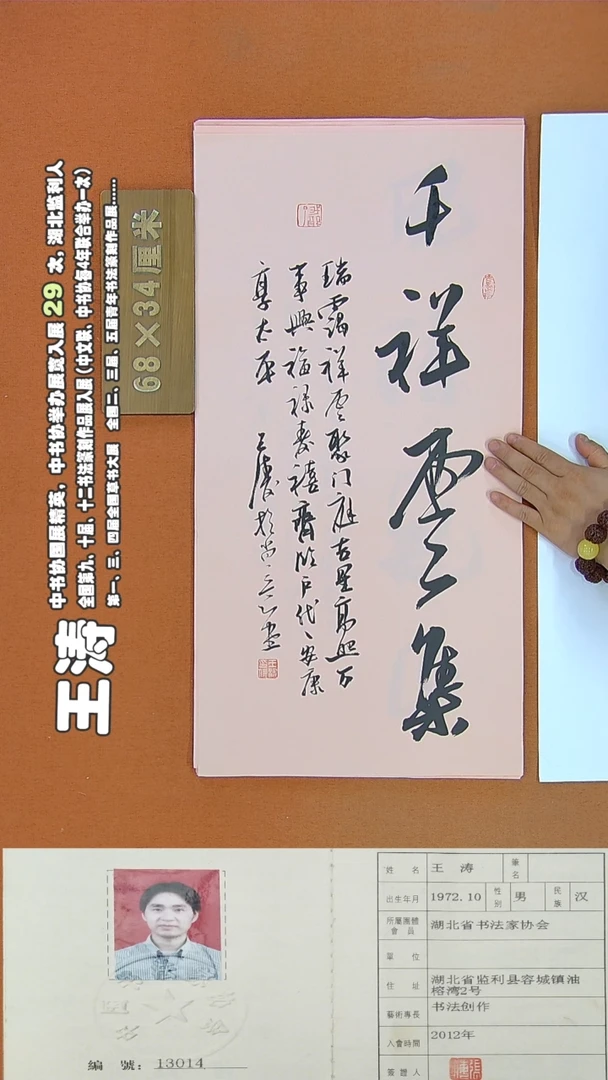 千祥雲集
瑞靄祥雲聚门庭吉星高照万
事興福禄寿禧齊临户代代安康
享太平
王涛
68×34厘米
中书协国展精英，中书协举办展赛入展29次，湖北监利人
全国第九、十届、十二书法篆刻作品展入展（中文联、中书协每4年联合举办一次）
第一、三、四届全国扇书大展 全国二、三届、五届青年书法篆刻作品展......
王涛
編 號：13014
姓 名 王 涛 筆名
出生年月 1972.10 性別 男 民族 汉
所屬團體會員 湖北省书法家协会
單 位
住 址 湖北省监利县容城镇油
榕湾2号
藝術專長 书法创作
入會時間 2012年
簽 證 人